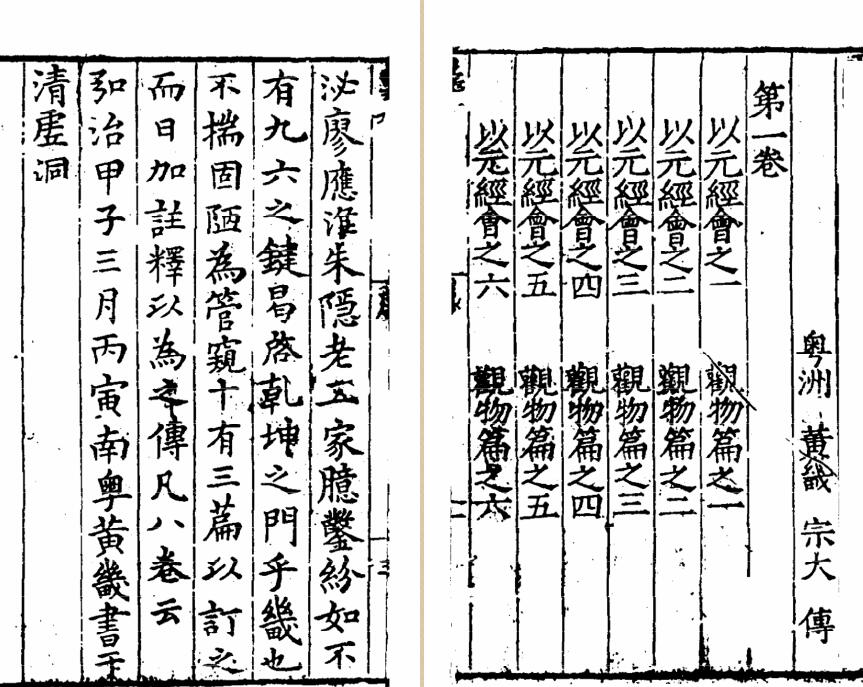 粤洲 黄畿 宗大 傳
第一卷
以元經會之一 觀物篇之一
以元經會之二 觀物篇之二
以元經會之三 觀物篇之三
以元經會之四 觀物篇之四
以元經會之五 觀物篇之五
以元經會之六 觀物篇之六
泌廖應淮朱隠老五家臆鑿紛如不
有九六之鍵曷啓乾坤之門乎畿也
不揣固陋為管窺十有三篇以訂之
而日加註釋以為之傳凡八卷云
弘治甲子三月丙寅南粤黄畿書于
清虛洞